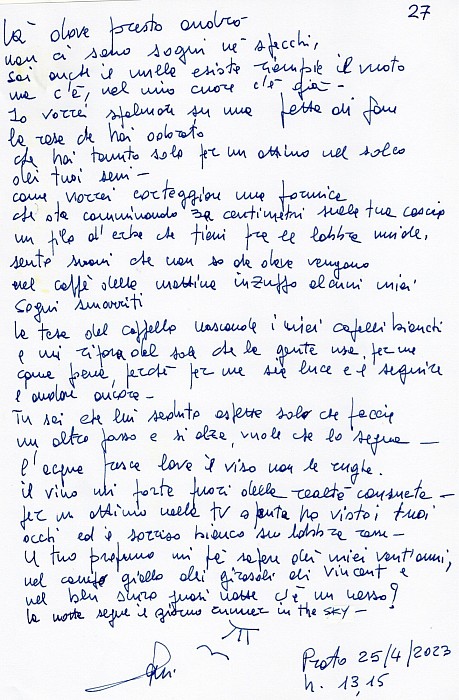 27
Là dove presto andrò
non ci sono sogni né specchi,
sai anche il nulla esiste riempie il vuoto
ma c'è, nel mio cuore c'è già -
Io vorrei spalmare su una fetta di pane
la rosa che hai odorato
che hai tenuto solo per un attimo nel solco
dei tuoi seni -
come vorrei corteggiare una formica
che sta camminando 32 centimetri sulla tua coscia
un filo d'erba che tieni fra le labbra umide,
sento suoni che non so da dove vengono
nel caffè della mattina inzuppo alcuni miei
sogni smarriti
la tesa del cappello nasconde i miei capelli bianchi
e mi ripara dal sole che la gente usa, per me
come pena, perché per me sia luce e è seguire
e andare ancora -
Tu sei che lui seduto aspetta solo che faccia
un altro passo e si alza, vuole che lo segua -
l'acqua fresca lava il viso non le rughe.
il vino mi porta fuori della realtà consueta -
per un attimo nella TV spenta ho visto i tuoi
occhi ed il sorriso bianco su labbra rosa -
Il tuo profumo mi fa sapere dei miei vent'anni,
nel campo giallo dei girasoli di Vincent e
nel blu scuro quasi notte c'è un nesso?
la notte segue il giorno runner in the SKY -
Prato 25/4/2023
h. 13,15